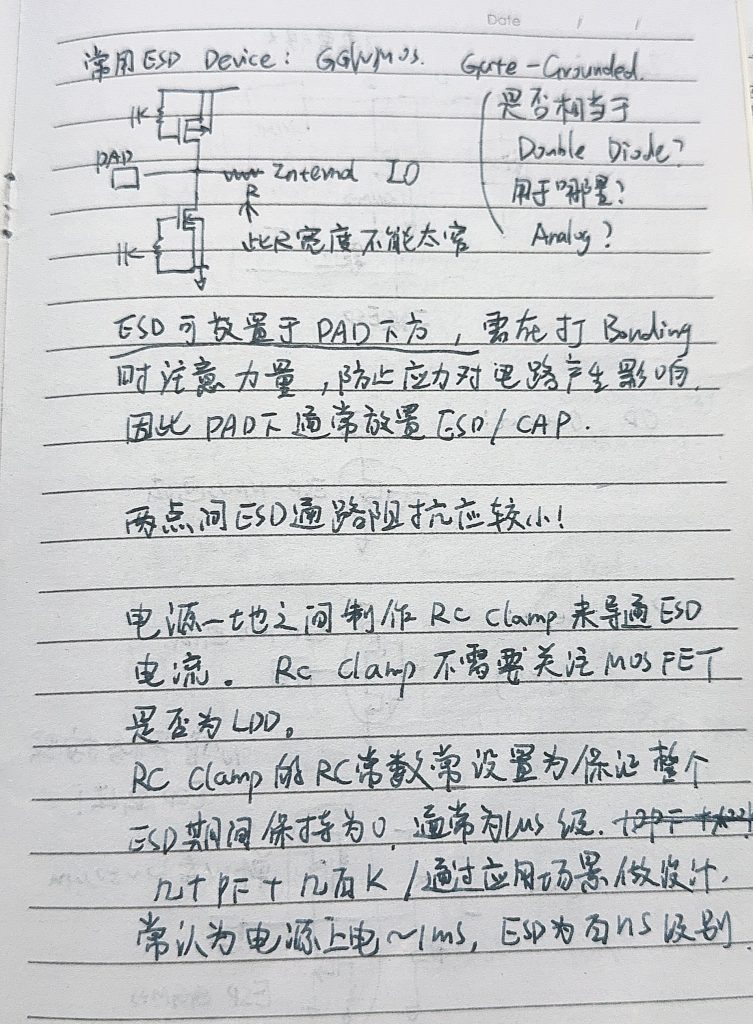 Date / /
常用ESD Device: GGNMOS. Gate-Grounded.
1K
是否相当于
Double Diode?
PAD
Internal IO
用于哪里?
R
Analog?
1K
此R宽度不能太窄
ESD可放置于PAD下方,需在打Bonding
时注意力量,防止应力对电路产生影响.
因此PAD下通常放置ESD/CAP.
两点间ESD通路阻抗应较小!
电源—地之间制作RC Clamp来导通ESD
电流。RC Clamp不需要关注MOSFET
是否为LDD。
RC Clamp的RC常数常设置为保证整个
ESD期间保持为0,通常为1us级.
几十PF+几百K/通过应用场景做设计.
常认为电源上电~1ms,ESD为百ns级别.